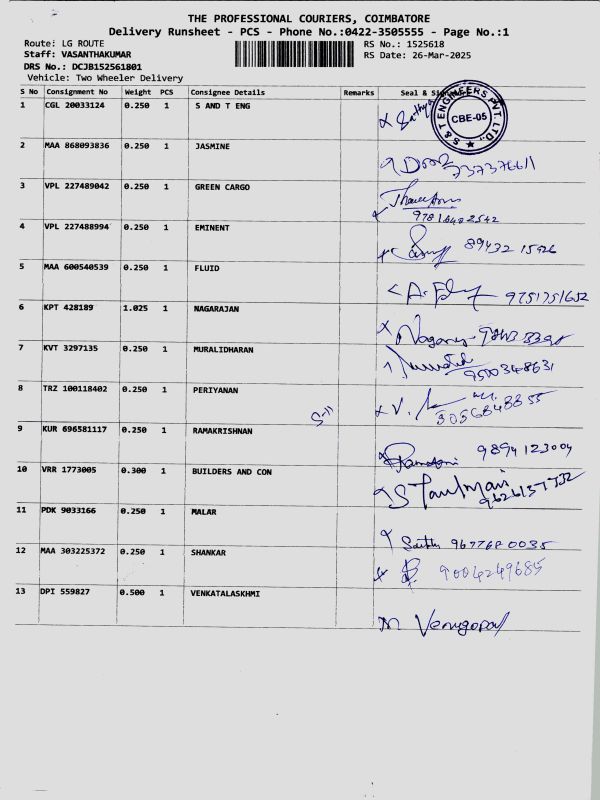 THE PROFESSIONAL COURIERS, COIMBATORE
Delivery Runsheet - PCS - Phone No.:0422-3505555 - Page No.:1
Route: LG ROUTE
RS No.: 1525618
Staff: VASANTHAKUMAR
RS Date: 26-Mar-2025
DRS No.: DCJB152561801
Vehicle: Two Wheeler Delivery
S No Consignment No Weight PCS Consignee Details Remarks Seal &
1 CGL 20033124 0.250 1 S AND T ENG
S & T ENGINEERS PVT. LTD.,
CBE-05
2 MAA 868093836 0.250 1 JASMINE
3 VPL 227489042 0.250 1 GREEN CARGO
97816482542
4 VPL 227488994 0.250 1 EMINENT
89432 15926
5 MAA 600540539 0.250 1 FLUID
9751751652
6 KPT 428189 1.025 1 NAGARAJAN
7 KVT 3297135 0.250 1 MURALIDHARAN
9500348631
8 TRZ 100118402 0.250 1 PERIYANAN
9 KUR 696581117 0.250 1 RAMAKRISHNAN
9894123004
10 VRR 1773005 0.300 1 BUILDERS AND CON
11 PDK 9033166 0.250 1 MALAR
12 MAA 303225372 0.250 1 SHANKAR
9004249685
13 DPI 559827 0.500 1 VENKATALASKHMI
M Venugopal